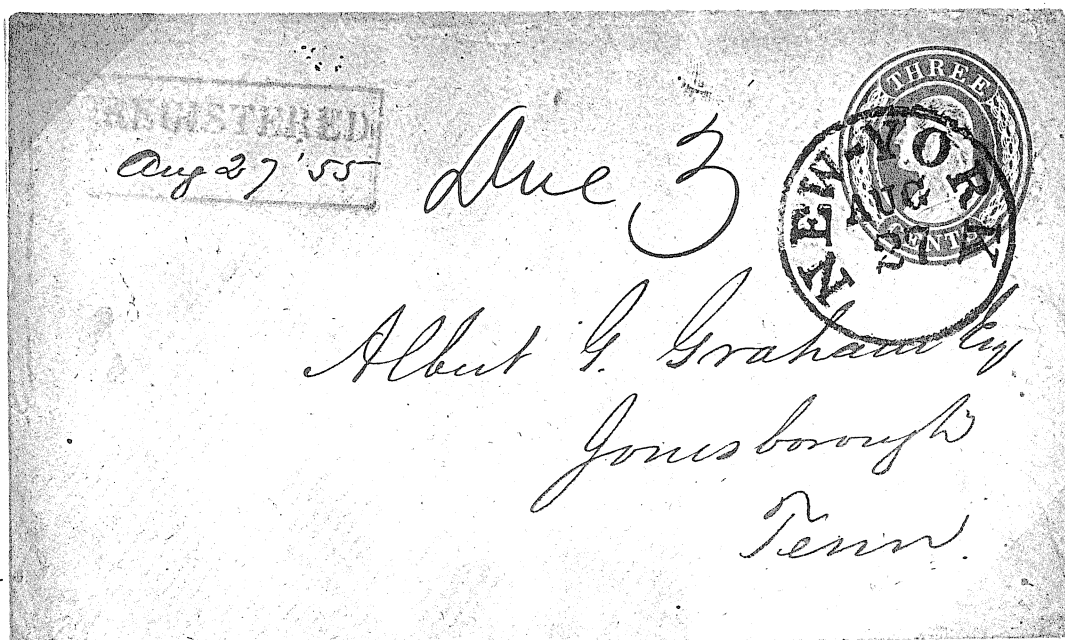 REGISTERED
Aug 27 '55
Due 3
THREE
CENTS
NEW-YORK
AUG
27
Albert G. Graham Esq
Jonesborough
Tenn.